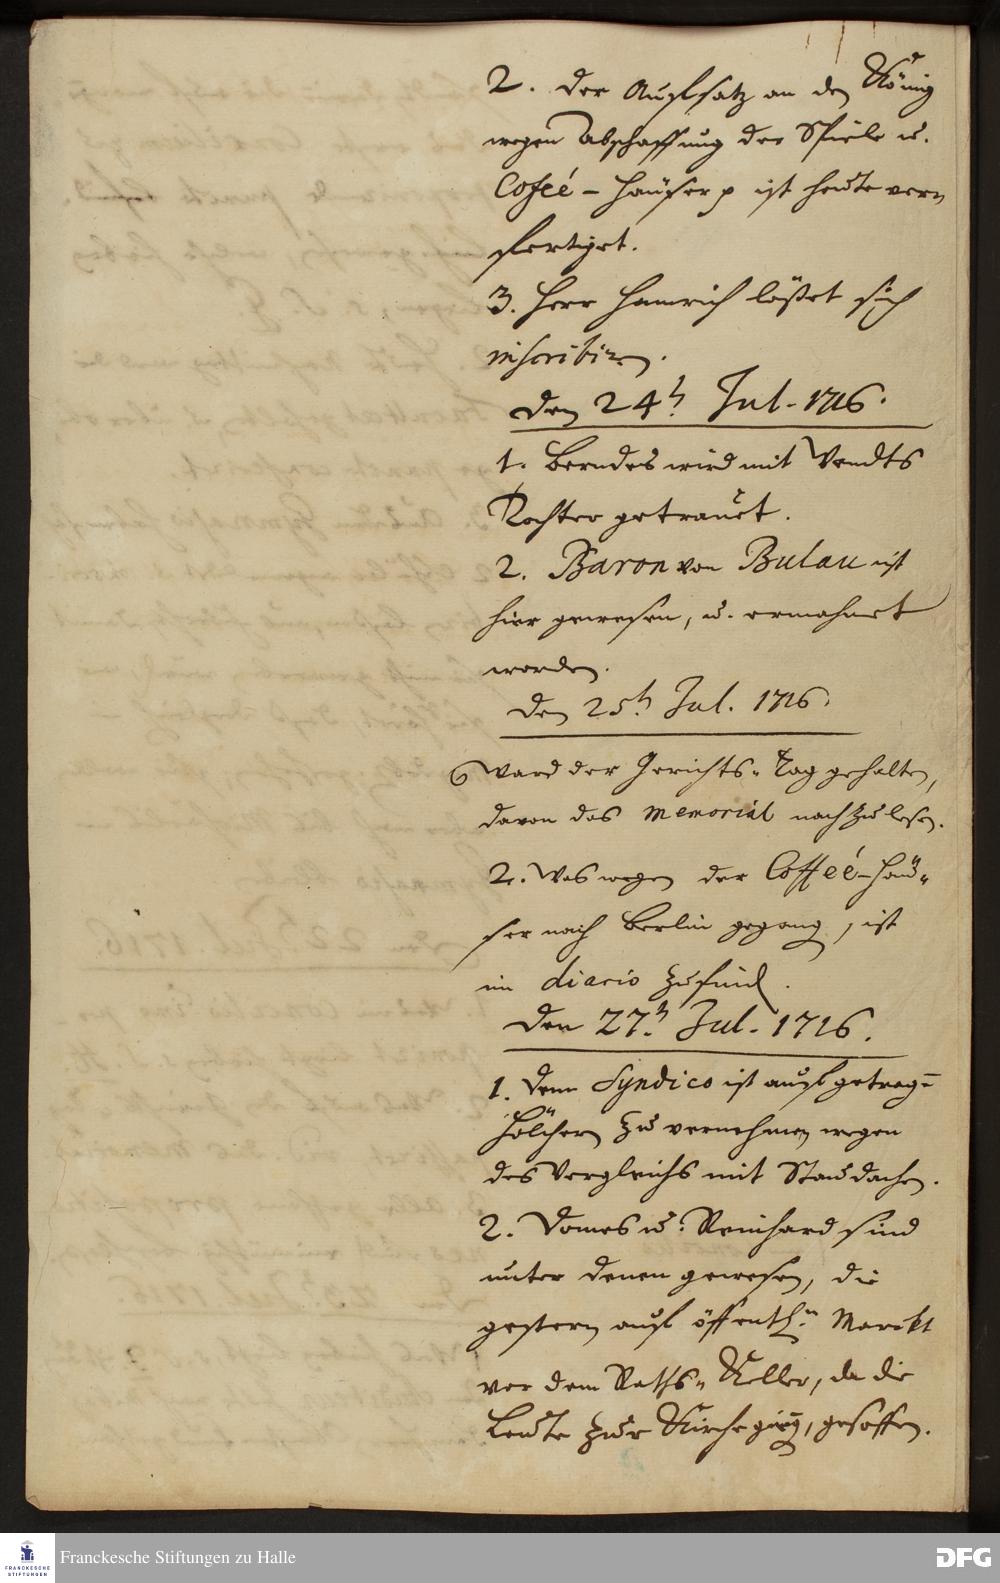 2. der Auffsatz an den König
wegen Abschaffung der Spiele u.
Cofeé-Häuser p ist heute ver-
fertiget.
3. Herr Hamrich läßet sich
inscribiren.
den 24t. Jul. 1716.
1. Berndes wird mit Vendts
Tochter getrauet.
2. Baron von Bulau ist
hier gewesen, u. ermahnet
worden.
den 25t. Jul. 1716.
Ward der Gerichts-Tag gehalten,
davon das Memorial nach zu lesen.
2. Was wegen der Cofféé-Häu-
ser nach Berlin gegang, ist
im diario zu find.
den 27t. Jul. 1716.
1. dem Syndico ist auffgetragen
Hölchern zu vernehmen wegen
des Vergleichs mit Staudachen.
2. Domes u. Reinhard sind
unter denen gewesen, die
gestern auff öffentln. Marckt
vor dem Raths-Keller, da die
Leute zur Kirche ging, gesoffen.
Franckesche Stiftungen zu Halle
FRANCKESCHE
STIFTUNGEN
DFG